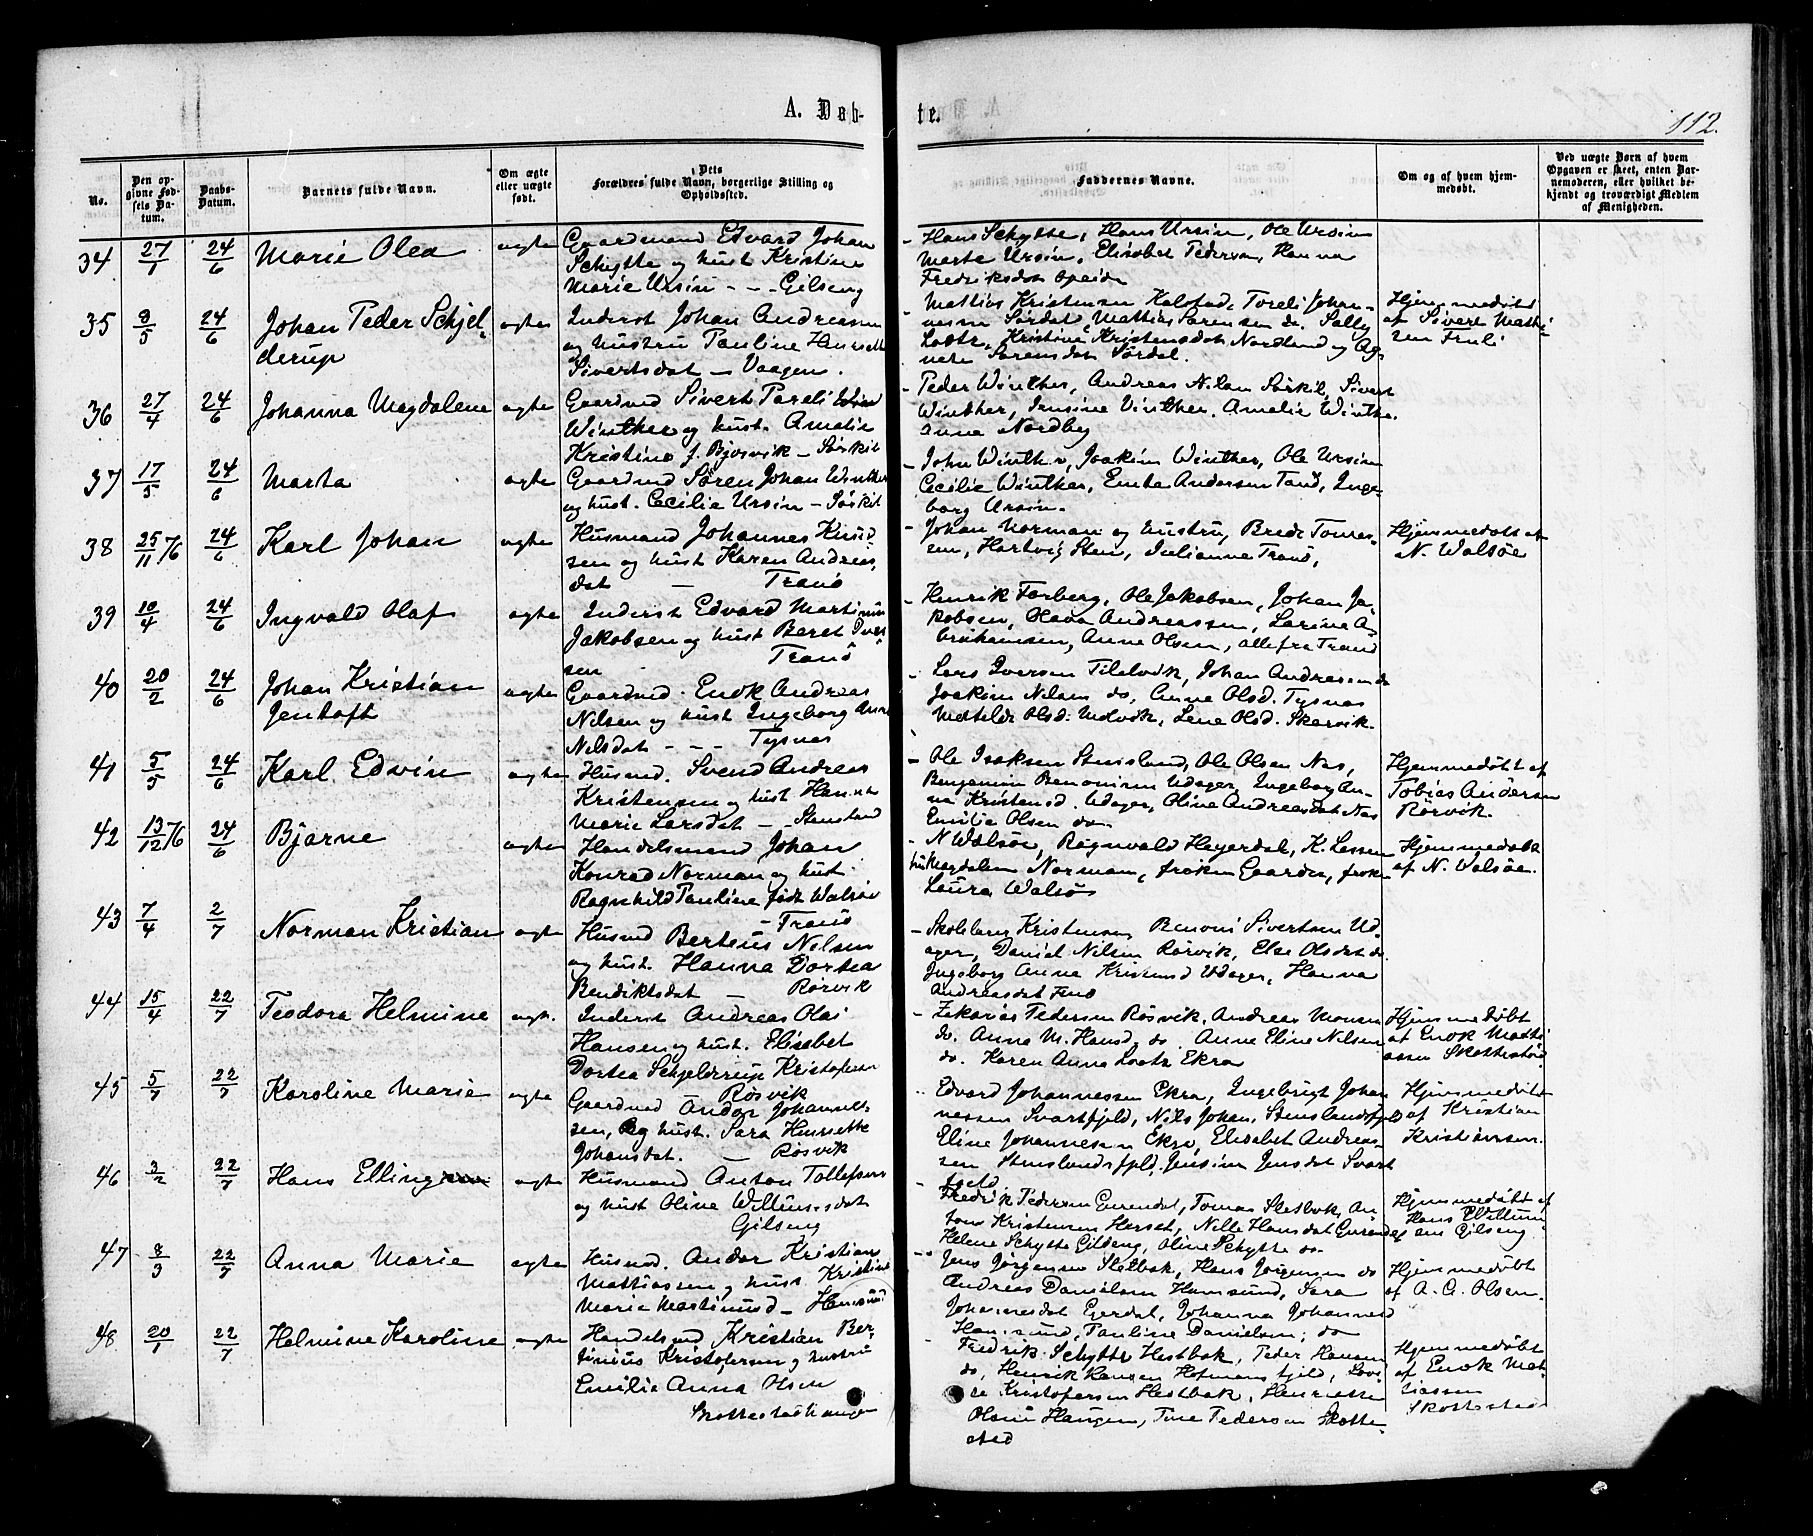 A. Døb-
te.
112.
No.
Den op-
givne Fød-
sels Da-
tum.
Daabs-
Datum.
Barnets fulde Navn.
Om ægte
eller uægte
født.
Dets
Forældres fulde Navn, borgerlige Stilling og
Opholdssted.
Faddernes Navne.
Om og af hvem hjem-
medøbt.
Ved uægte Børn af hvem
Opgaven er skeet, enten Bar-
nemoderen, eller hvilket be-
kjendt og troværdigt Medlem
af Menigheden.
34 27/1 24/6 Marie Olea ægte
Gaardmand Edvard Johan
Schytte og hust Kristine
Marie Ursin - - - Gilseng
- Hans Schytte, Hans Ursin, Ole Ursin
Marte Ursin, Elisabet Pedersen, Hanna
Fredriksdat Opeide
35 8/5 24/6 Johan Peder Schjel-
derup
ægte
Inderst Johan Andreasen
og hustru Pauline Henriette
Sivertsdat - Vaagen.
- Mattias Kristensen Kalstad, Toreli Johan-
nesen Sørdal, Mattias Sørensen do. Sally
Lootz, Kristine Kristensdat Nordlund og Ag-
nete Sørensdat Sørdal.
Hjemmedøbt
af Sivert Mathi-
sen
36 27/4 24/6 Johanna Magdalene ægte
Gaardmd Sivert Pareli
Winther og hust. Amalie
Kristine f. Bjørvik - Sørkil
- Peder Winther, Andreas Nilsen Sørkil, Sivert
Winther, Jensine Vinther, Amalie Winthe.
Anna Nordby
37 17/5 24/6 Marta ægte
Gaardmd Søren Johan Winther
og hust. Cecilie Ursin - Sørkil
- John Winther, Joakim Winther, Ole Ursin
Cecilie Winther, Andersen, Inge-
borg Ursin.
38 25/11 76 24/6 Karl Johan ægte
Husmand Johannes Knud-
sen og hust Karen Andreas-
dat - Tranø
- Johan Norman og hustru, Brede
sen, Hartvig Steen, Julianne Tranø,
Hjemmedøbt af
N. Walsøe
39 10/4 24/6 Ingvald Olaf ægte
Inderst Edvard Martinus
Jakobsen og hust Beret Iver-
sen Tranø
- Henrik Forberg, Ole Jakobsen, Johan Ja-
kobsen, Olava Andreassen, Larine A-
brahamsen, Anne Olsen, alle fra Tranø
40 20/2 24/6 Johan Kristian
Jentoft
ægte
Gaardmd. Enok Andreas
Nilsen og hust Ingeborg Anna
Nilsdat - - Tysnes
- Lars Iversen, Johan Andreasen do
Joakim Nilsen do, Anne Olsd. Tysnes
Matilde Olsd., Lene Olsd. Skarvik.
41 5/5 24/6 Karl Edvin ægte
Husmd. Svend Andreas
Kristensen og hust Hanna
Marie Larsdat - - Stensland
- Ole Isaksen Stensland, Ole Olsen Nes,
Benjamin Benonisen Udager, Ingeborg An-
na Kristensd. Udager, Oline Andreasdat Nes
Emilie Olsen do.
Hjemmedøbt af
Tobias Andersen
Rørvik.
42 13/12 76 24/6 Bjarne ægte
Handelsmand Johan
Konrad Norman og hust
Ragnhild Pauline født Walsøe
- Tranø
- N. Walsøe, Ragnvald Heyerdal, K. Lassen
Magdalene Norman, frøken Gaarder, frøken
Laura Walsøe
Hjemmedøbt
af N. Walsøe.
43 7/4 2/7 Norman Kristian ægte
Husmd Berteus Nilsen
og hust. Hanna Dortea
Bendiktsdat - Rørvik
- Kristensen, Benoni Sivertsen Ud-
ager, Daniel Nilsen Rørvik, Else Olsdat do
Ingeborg Anna Kristensd Udager, Hanna
Andreasdat
44 15/4 22/7 Teodora Helmine ægt.
Inderst Andreas Olai
Hansen og hust. Elisabet
Dortea Schjelderup Kristofersen
Røsvik
- Zakarias Pedersen Røsvik, Andreas Monsen
do. Anna M. Hansd. do. Anne Eline Nilsen
do. Karen Anna Lootz Ekra
Hjemmedøbt
af Enok Matti-
assen Skottestad
45 5/7 22/7 Karoline Marie ægte
Gaardmd Andor Johannes-
sen, og hust. Sara Henriette
Johansdat. - Røsvik
Edvard Johannessen Ekra, Ingebrigt Johan-
nessen Svartfjeld, Nils Johan. Stenslandsfjeld
Eline Johannesen Ekra, Elisabet Andreas-
sen Stenslandsfjeld, Jensine Jensdat Svart-
fjeld
Hjemmedøbt
af Kristian
Kristiansen.
46 3/2 22/7 Hans Elling ægte
Husmand Anton Tollefsen
og hust Oline Willumsdat
Gilseng
- Fredrik Pedersen, Tomas Sletbak, An-
ton Kristensen Herset, Nille Hansdat
Helene Schytte Gilseng, Oline Schytte do
Hjemmedøbt af
Hans Willum-
sen Gilseng
47 8/3 22/7 Anna Marie ægte
Husmd. Andor Kristian
Mattiassen og hust Kristine
Marie Martinusd - Hamsund
- Jens Jørgensen Sletbak, Hans Jørgensen do
Andreas Danielsen Hamsund, Sara
Johannesdat, Johanna Johannesd
Hamsund, Pauline Danielsen, do
Hjemmedøbt
af A. G. Olsen.
48 20/1 22/7 Helmine Karoline ægte
Handelsmd Kristian Ber-
tinius Kristofersen og hustru
Emilie Anna Olsen
Skottestadhaugen
- Fredrik Schytte Hestbak, Peder Hansen
do, Henrik Hansen Hofmansfjeld, Lovi-
se Kristofersen Hestbak, Henriette
Olsen Haugen, Tine Pedersen Skotte-
sted
Hjemmedøbt
af Enok Mat-
tiassen
Skottested